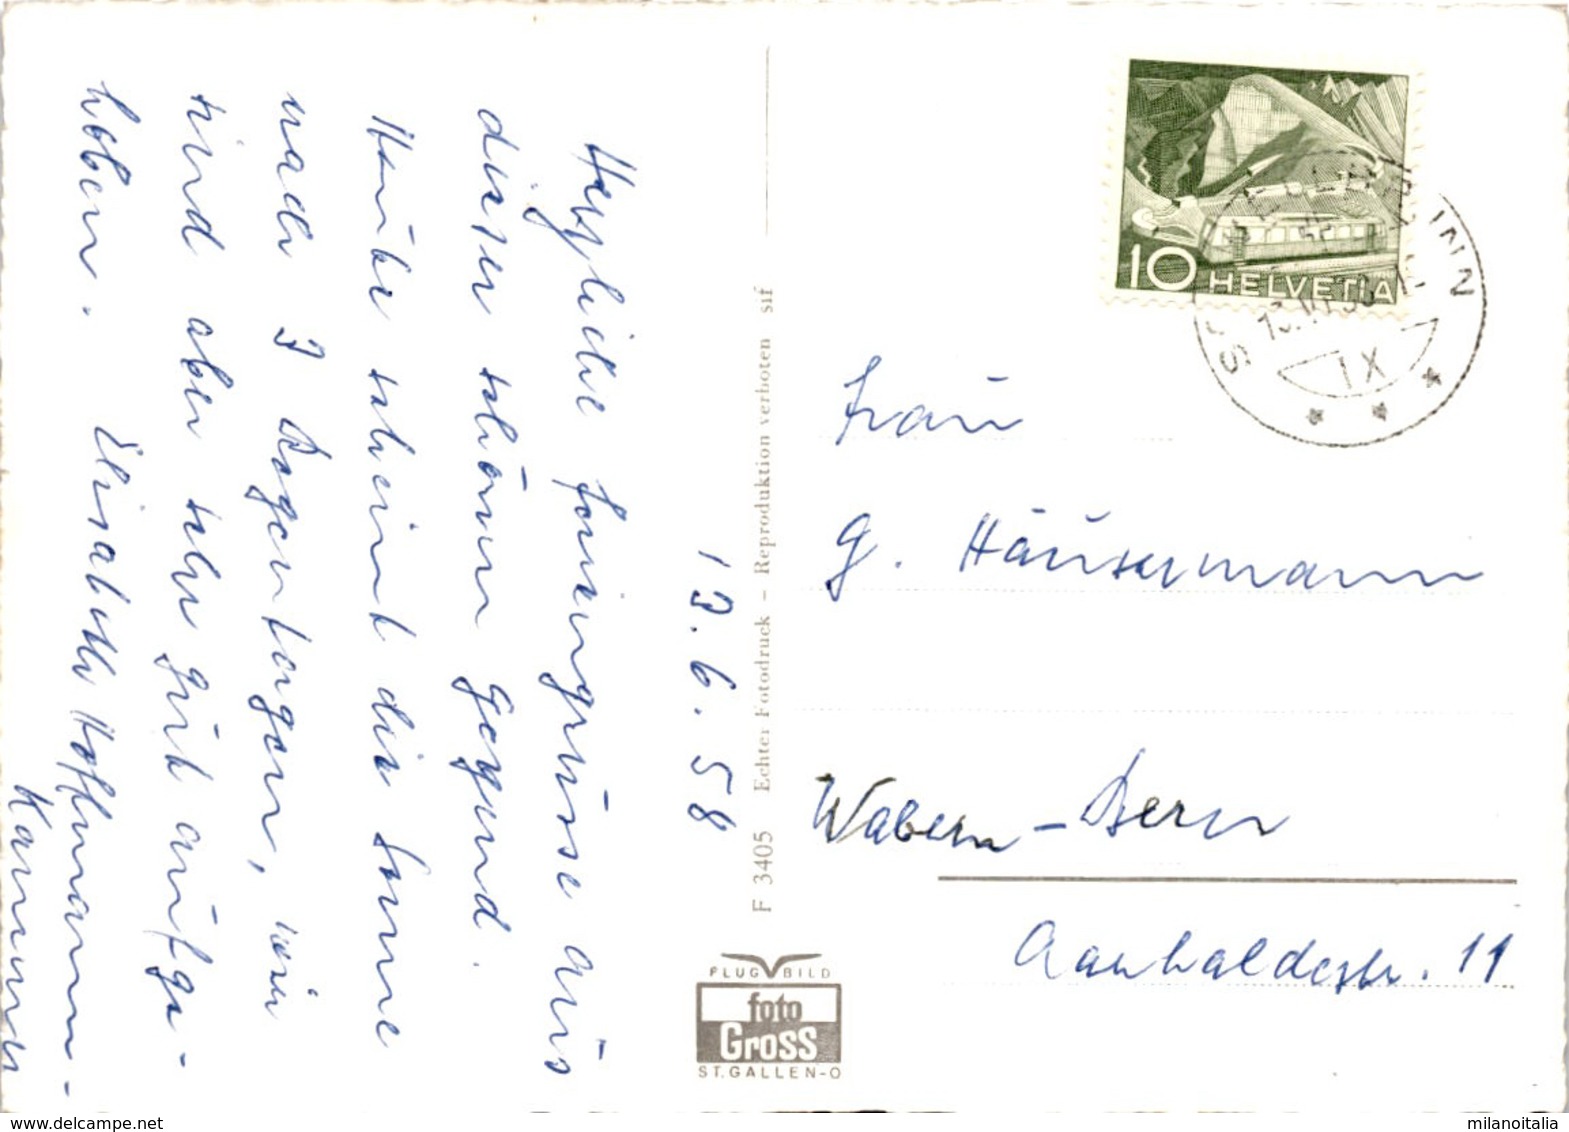 13.6.58
Herzliche Feriengrüsse aus
dieser schönen Gegend.
Heute scheint die Sonne
nach 3 Regentagen, wir
sind aber sehr gut aufge-
hoben. Elisabeth Hoffmann-
Kammer
F 3405 Echter Fotodruck – Reproduktion verboten sif
FLUG BILD
foto
Gross
ST. GALLEN-O
10 HELVETIA
INN
IX
Frau
G. Häusermann
Wabern-Bern
Aarhaldestr. 11
milanoitalia
www.delcampe.net